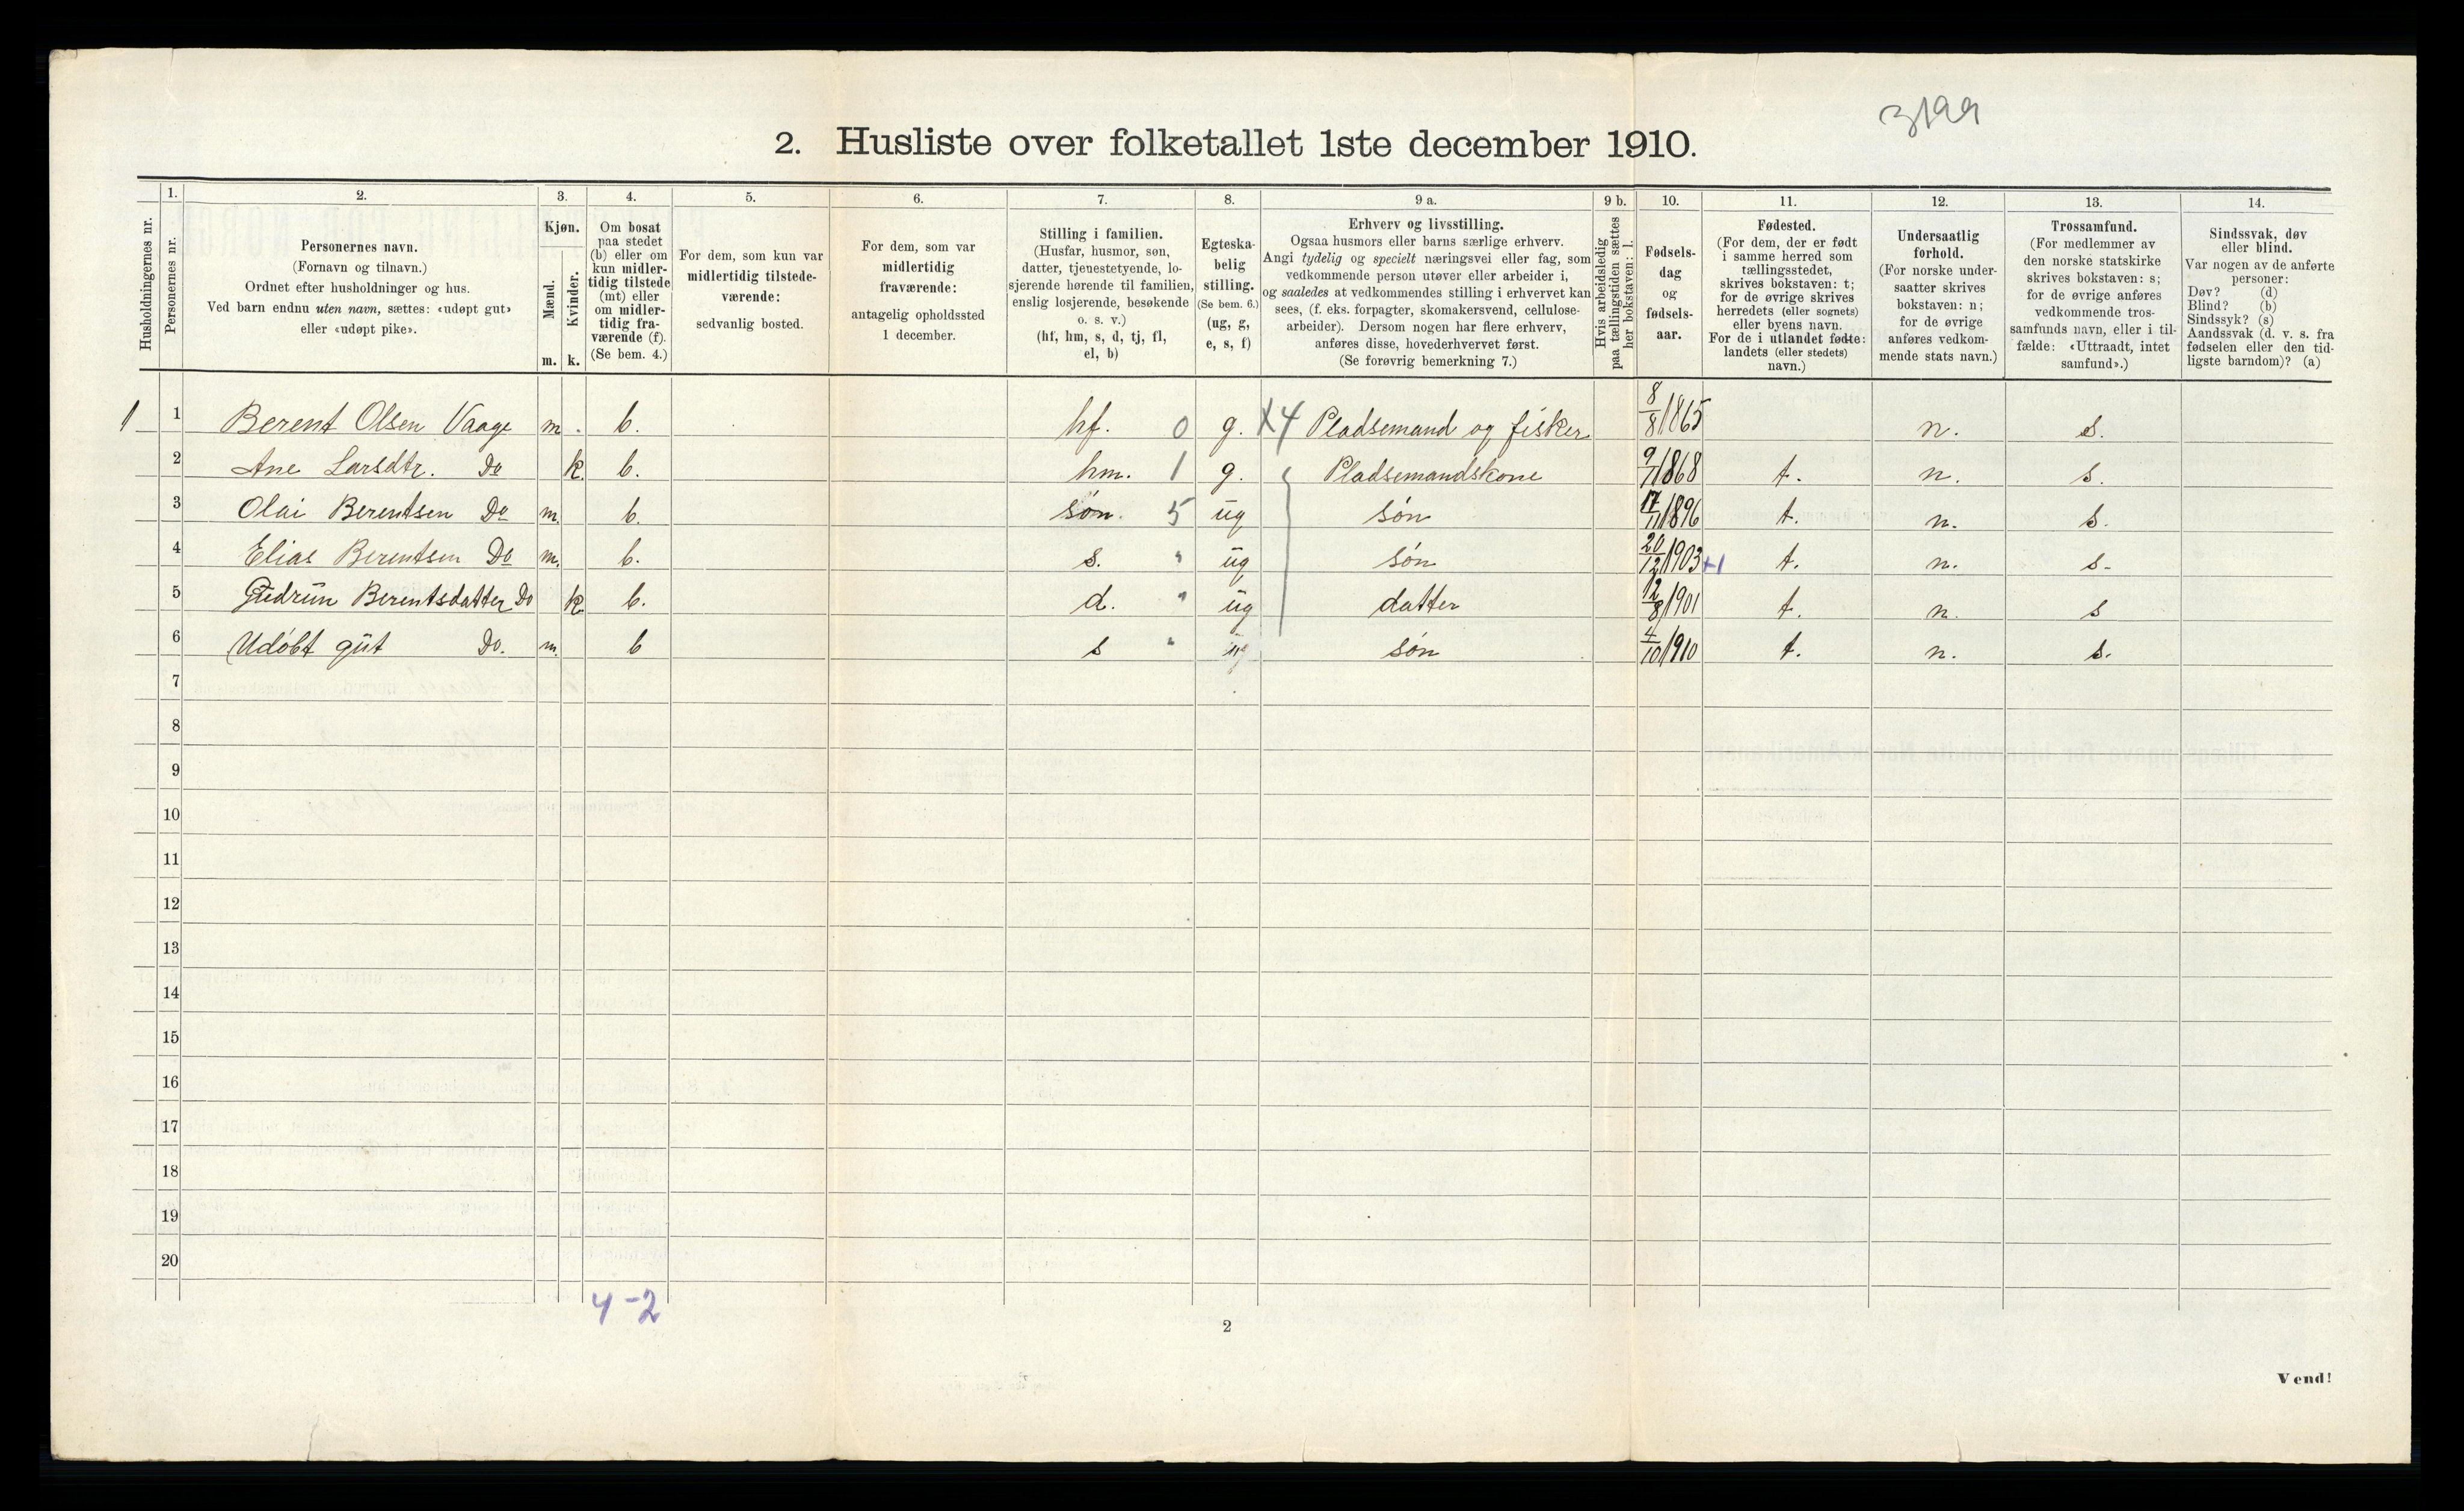 3199
2. Husliste over folketallet 1ste december 1910.
Husholdningernes nr.
1.
Personernes nr.
2.
Personernes navn.
(Fornavn og tilnavn.)
Ordnet efter husholdninger og hus.
Ved barn endnu uten navn, sættes: «udøpt gut»
eller «udøpt pike».
3.
Kjøn.
Mænd.
Kvinder.
m. k.
4.
Om bosat
paa stedet
(b) eller om
kun midler-
tidig tilstede
(mt) eller
om midler-
tidig fra-
værende (f).
(Se bem. 4.)
5.
For dem, som kun var
midlertidig tilstede-
værende:
sedvanlig bosted.
6.
For dem, som var
midlertidig
fraværende:
antagelig opholdssted
1 december.
7.
Stilling i familien.
(Husfar, husmor, søn,
datter, tjenestetyende, lo-
sjerende hørende til familien,
enslig losjerende, besøkende
o. s. v.)
(hf, hm, s, d, tj, fl,
el, b)
8.
Egteska-
belig
stilling.
(Se bem. 6.)
(ug, g,
e, s, f)
9 a.
Erhverv og livsstilling.
Ogsaa husmors eller barns særlige erhverv.
Angi tydelig og specielt næringsvei eller fag, som
vedkommende person utøver eller arbeider i,
og saaledes at vedkommendes stilling i erhvervet kan
sees, (f. eks. forpagter, skomakersvend, cellulose-
arbeider). Dersom nogen har flere erhverv,
anføres disse, hovederhvervet først.
(Se forøvrig bemerkning 7.)
9 b.
Hvis arbeidsledig
paa tællingstiden sættes
her bokstaven: l.
10.
Fødsels-
dag
og
fødsels-
aar.
11.
Fødested.
(For dem, der er født
i samme herred som
tællingsstedet,
skrives bokstaven: t;
for de øvrige skrives
herredets (eller sognets)
eller byens navn.
For de i utlandet fødte:
landets (eller stedets)
navn.)
12.
Undersaatlig
forhold.
(For norske under-
saatter skrives
bokstaven: n;
for de øvrige
anføres vedkom-
mende stats navn.)
13.
Trossamfund.
(For medlemmer av
den norske statskirke
skrives bokstaven: s;
for de øvrige anføres
vedkommende tros-
samfunds navn, eller i til-
fælde: «Uttraadt, intet
samfund».)
14.
Sindssvak, døv
eller blind.
Var nogen av de anførte
personer:
Døv? (d)
Blind? (b)
Sindssyk? (s)
Aandssvak (d. v. s. fra
fødselen eller den tid-
ligste barndom)? (a)
1 1 Berent Olsen Vaage m. b. hf. 0 g. X4 Pladsemand og fisker 8/8 1865 n. s.
2 Ane Larsdtr. Do k. b. hm. 1 g. Pladsemandskone 9/7 1868 t. n. s.
3 Olai Berentsen Do m. b. søn. 5 ug søn 17/11 1896 t. n. s.
4 Elias Berentsen Do m. b. s. " ug søn 20/12 1903 +1 t. n. s.
5 Gudrun Berentsdatter Do k. b. d. " ug datter 12/8 1901 t. n. s
6 Udöbt gut Do. m. b s " ug søn 4/10 1910 t. n. s.
7
8
9
10
11
12
13
14
15
16
17
18
19
20
4-2
2
Vend!